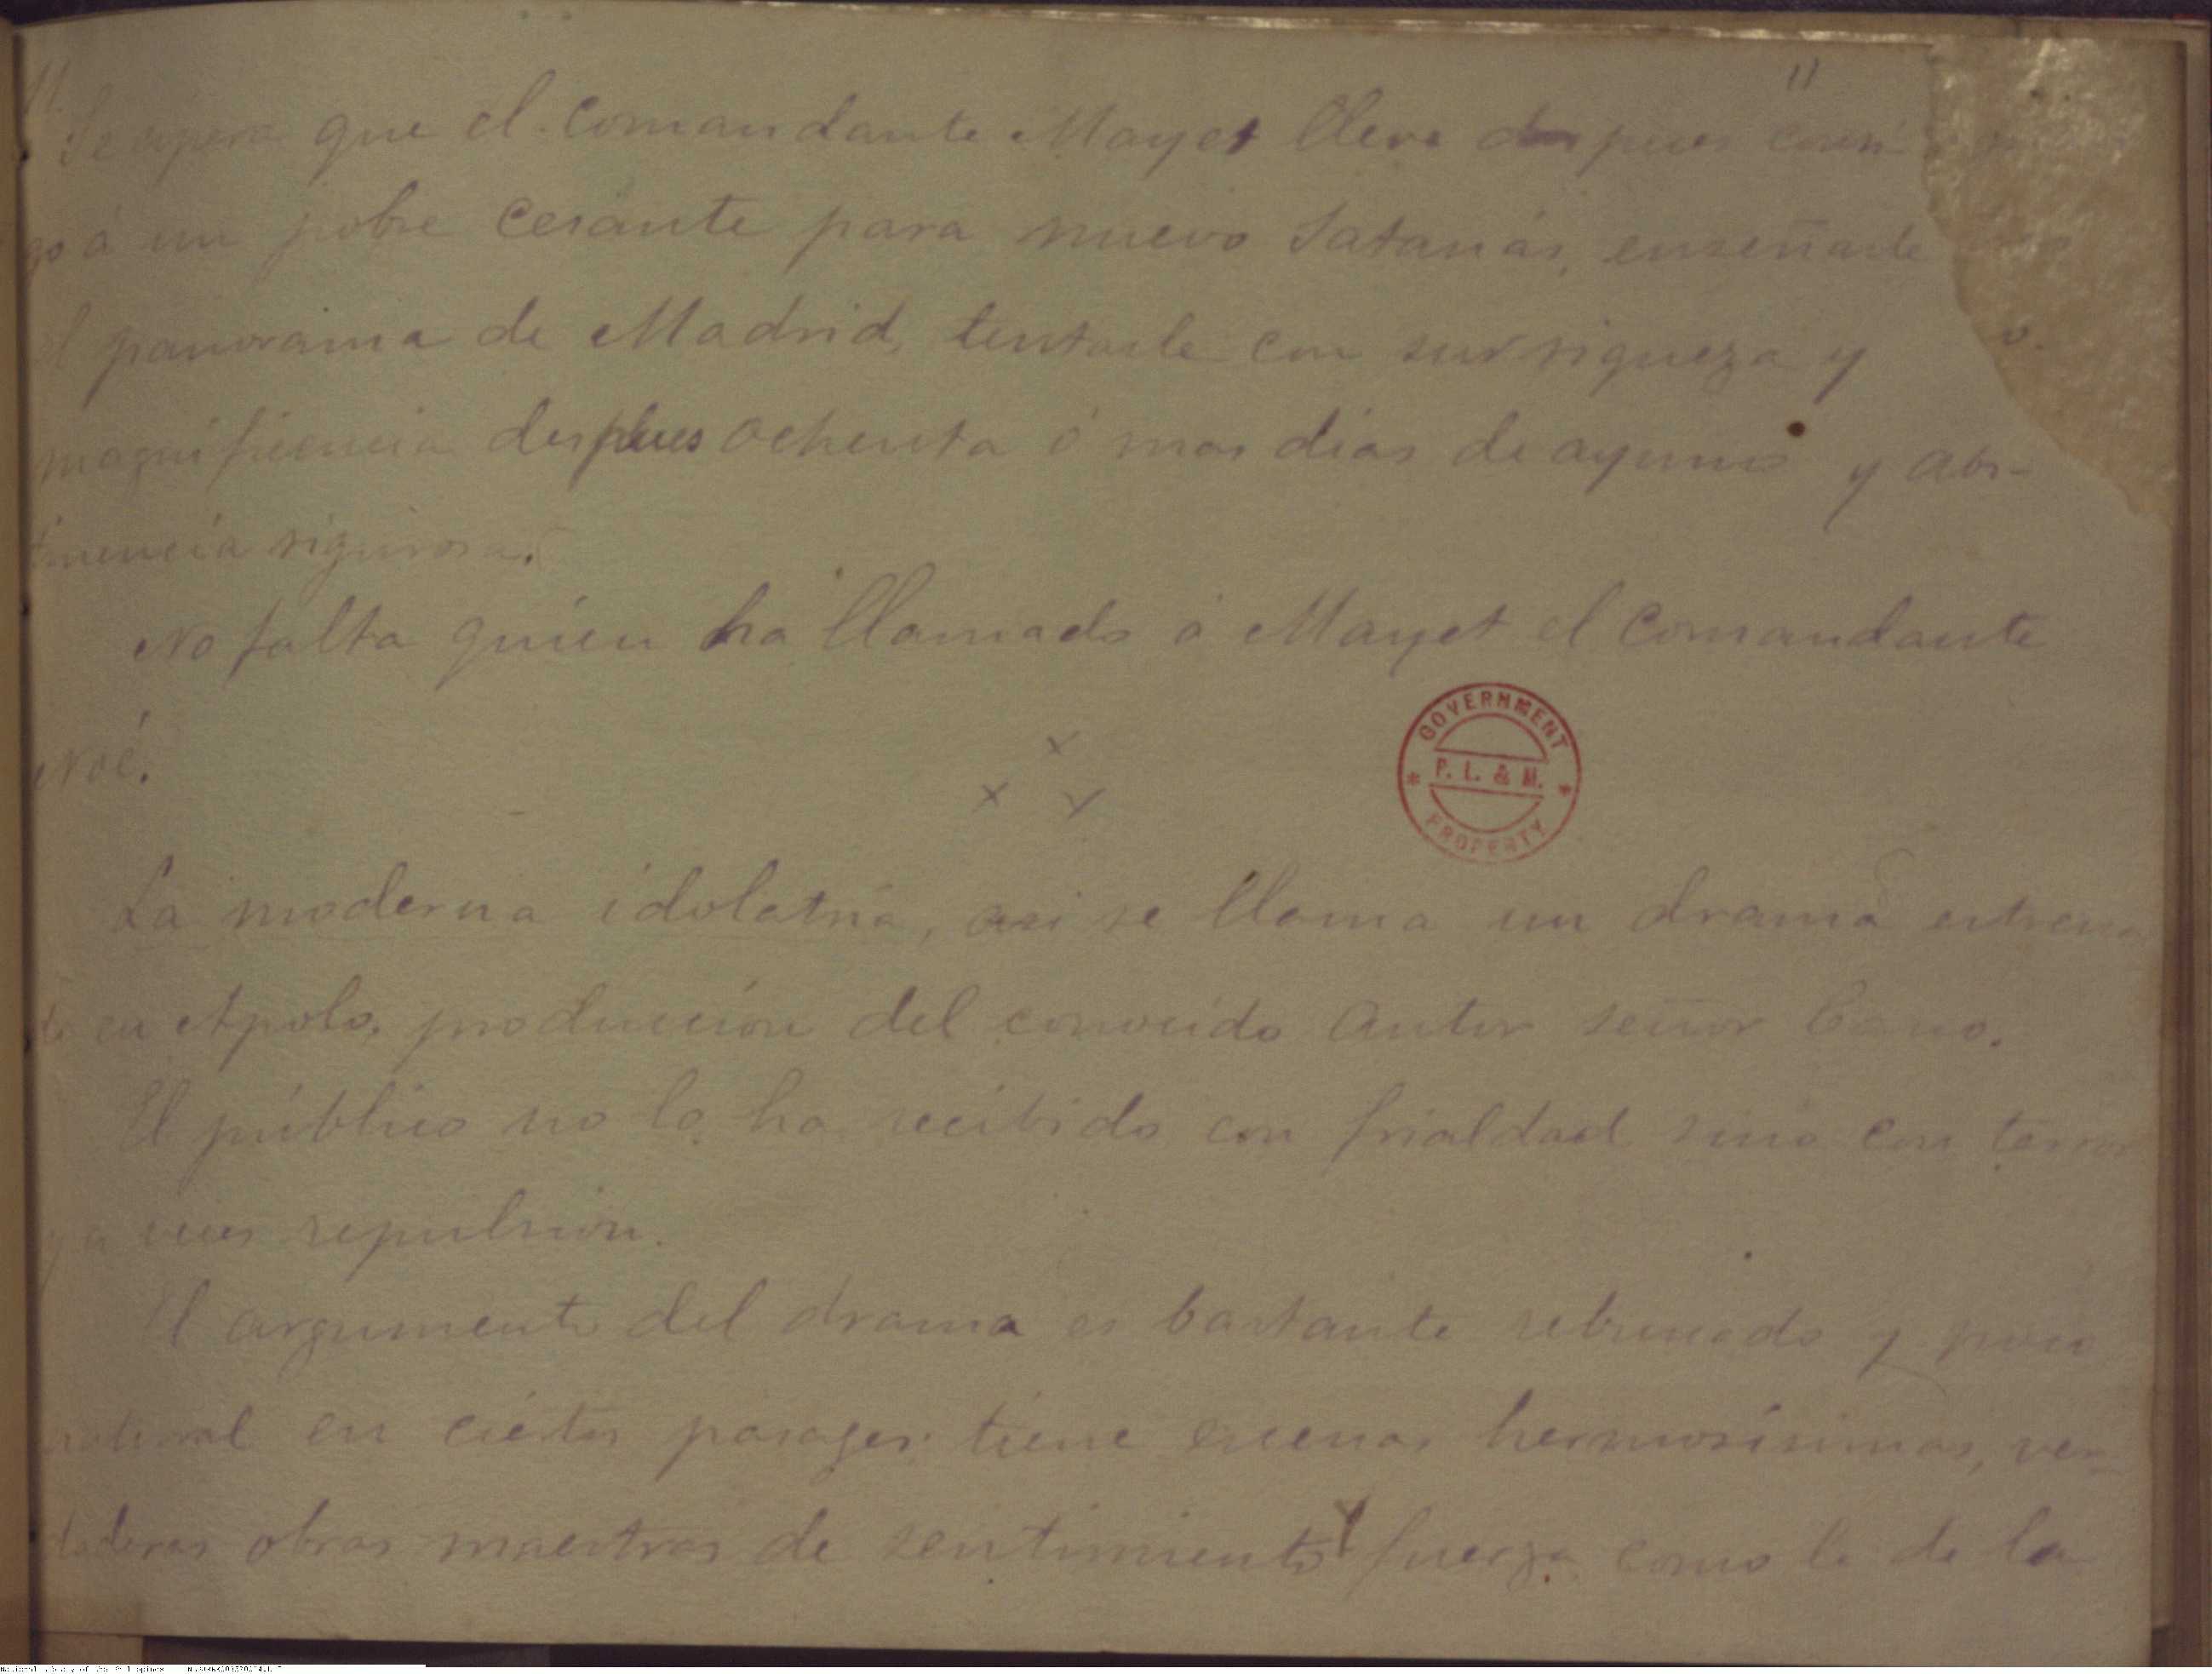 11
11.
Se espera que el Comandante Mayet lleve despues consi
go á un pobre cesante para nuevo Satanás, enseñarle
el panorama de Madrid, tentarle con sus riqueza y
magnificencia despues ochenta ó mas dias de ayuno y abs-
tinencia rigurosa.
No falta quien ha llamado á Mayet el Comandante
Noé.
x
x x
La moderna idolatria, asi se llama un drama estrena
do en Apolo, produccion del conocido autor señor Cano.
El público no lo ha recibido con frialdad sino con terror
y á veces repulsion.
El argumento del drama es bastante rebuscado y poco
natural en ciertos pasages: tiene escenas hermosísimas, ver-
daderas obras maestras de sentimiento y fuerza como la de la
GOVERNMENT
P. L. & M.
PROPERTY